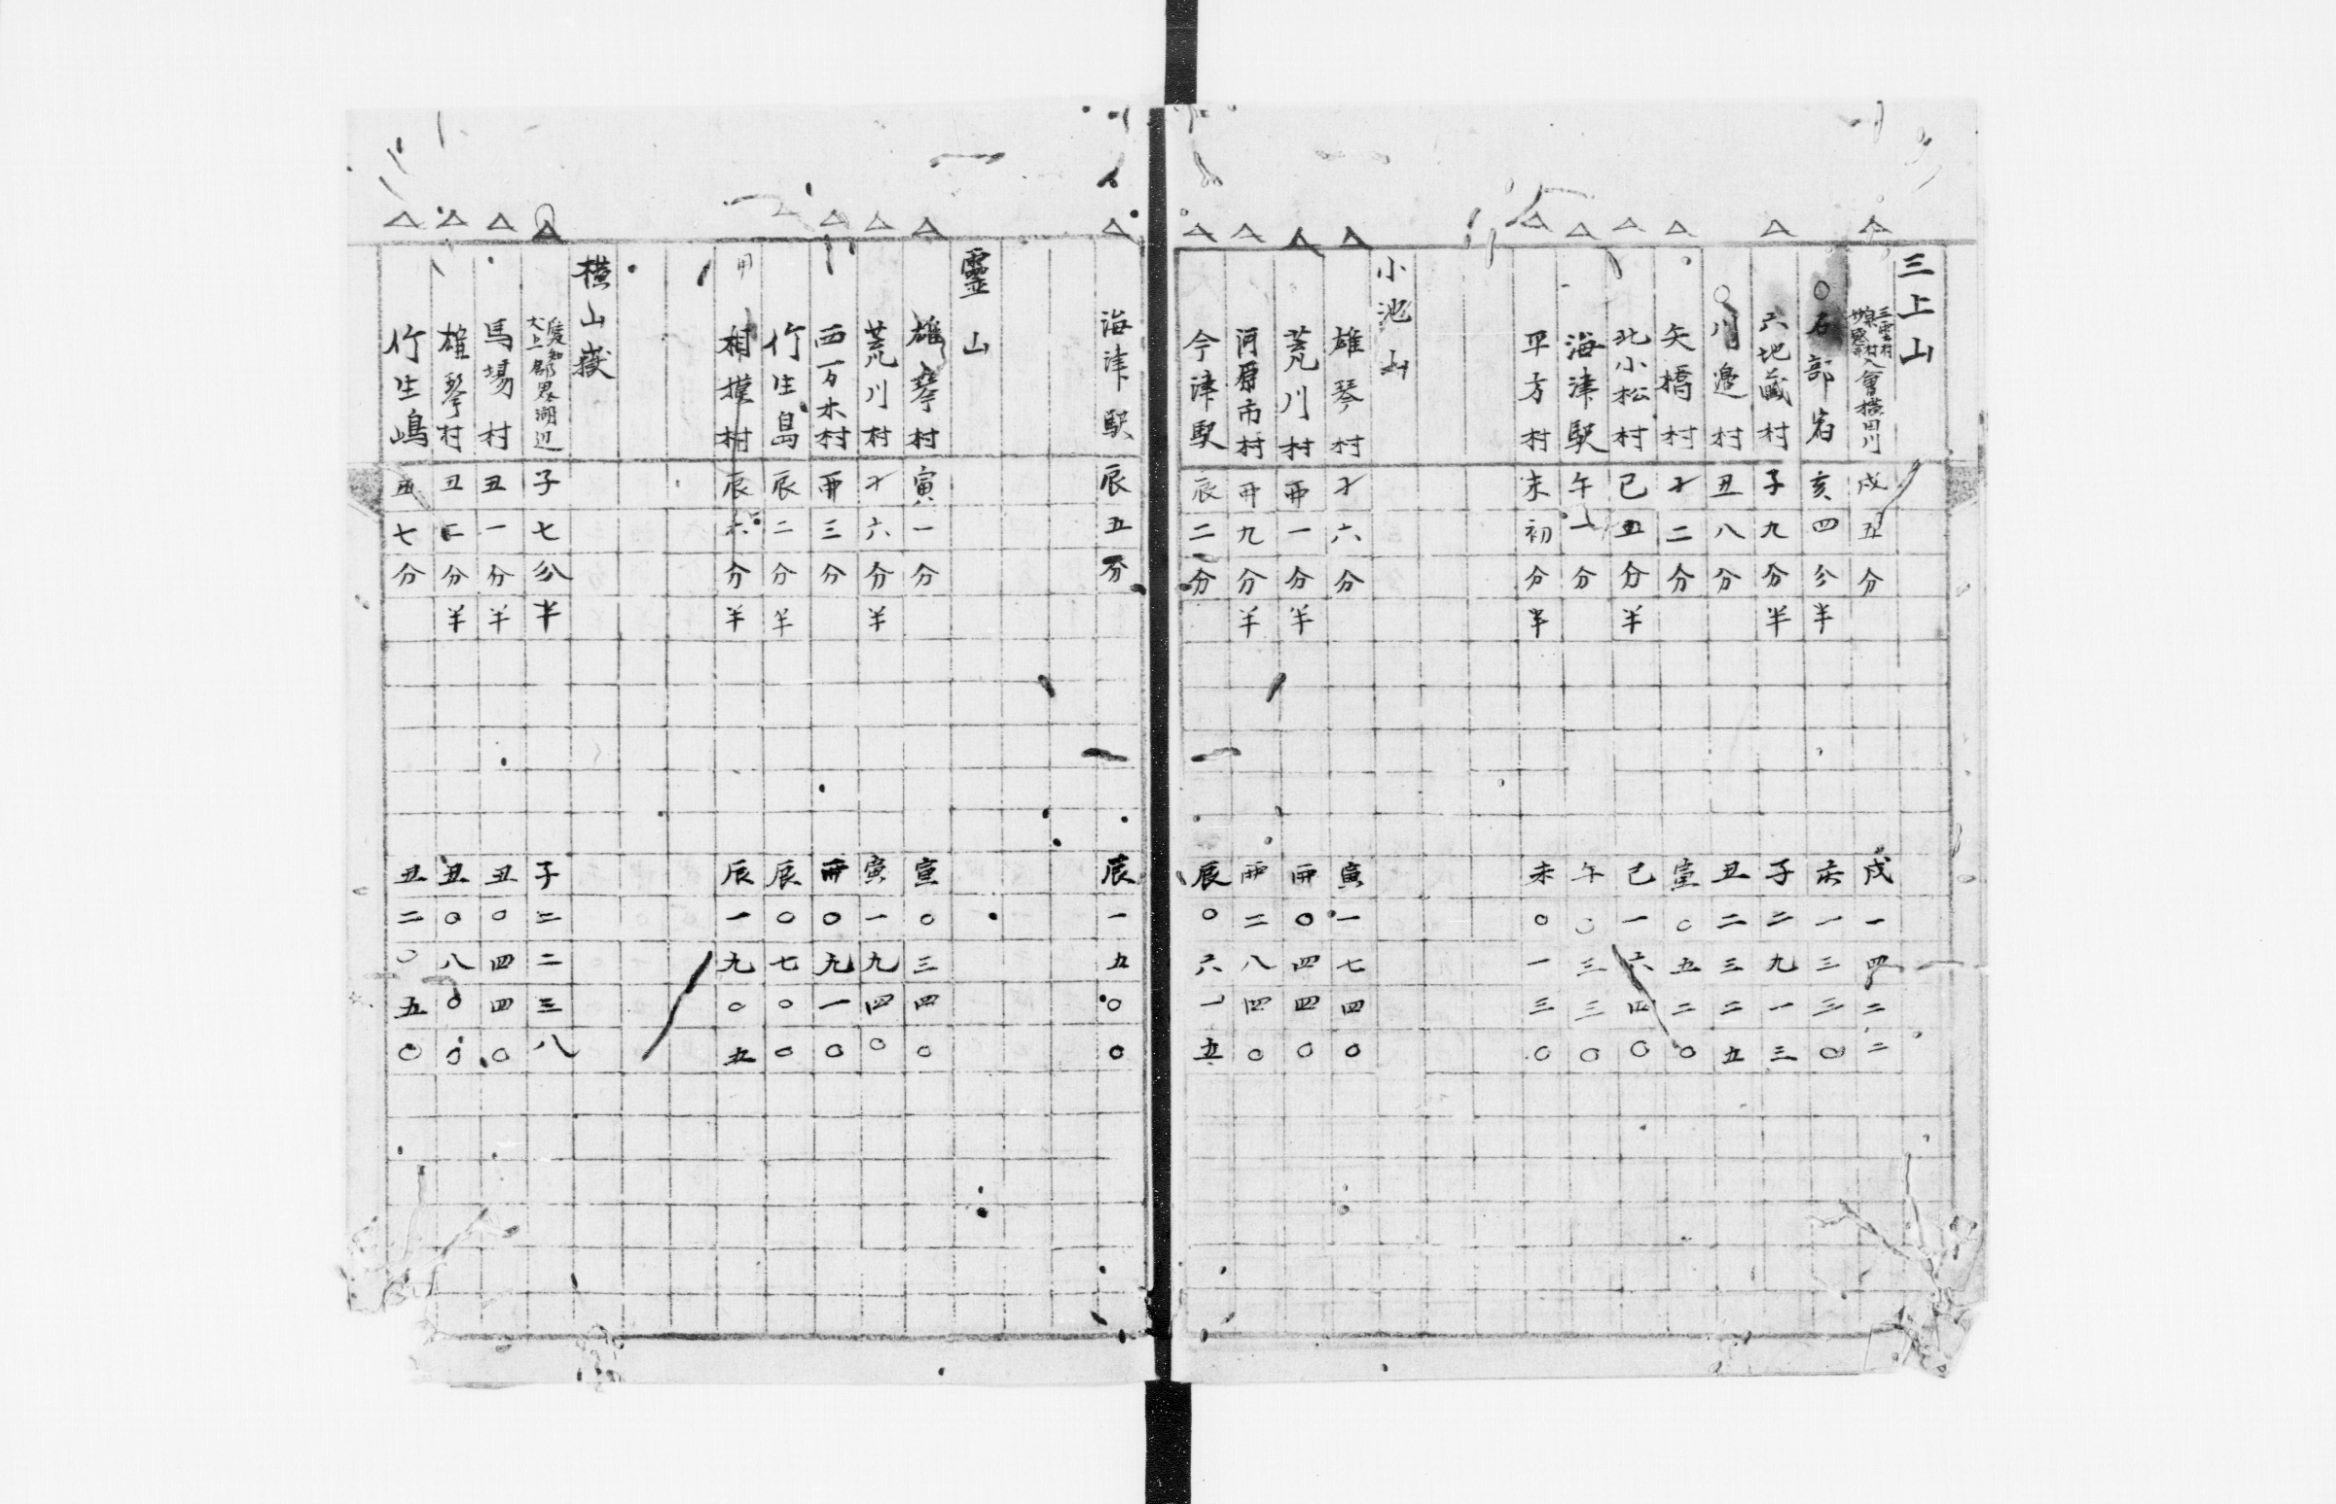 三上山
三雲村
泉村入會横田川 戌五分 戌一四二二
○石部宿 亥四分半 亥一三三〇
六地蔵村 子九分半 子二九一三
○川邉村 丑八分 丑二三二五
矢橋村 才二分 寅〇五二〇
北小松村 巳五分半 巳一六四〇
海津駅 午一分 午〇三三〇
平方村 未初分半 未〇一三〇
小池山
雄琴村 才六分 寅一七四〇
荒川村 夘一分半 夘〇四四〇
河原市村 夘九分半 夘二八四〇
今津駅 辰二分 辰〇六一五
海津駅 辰五分 辰一五〇〇
靈山
雄琴村 寅一分 寅〇三四〇
荒川村 才六分半 寅一九四〇
西万木村 夘三分 夘〇九一〇
竹生島 辰二分半 辰〇七〇〇
相撲村 辰六分半 辰一九〇五
横山嶽
愛知
犬上郡界湖辺 子七分半 子二二三八
馬場村 丑一分半 丑〇四四〇
雄琴村 丑二分半 丑〇八〇〇
竹生嶋 丑七分 丑二〇五〇